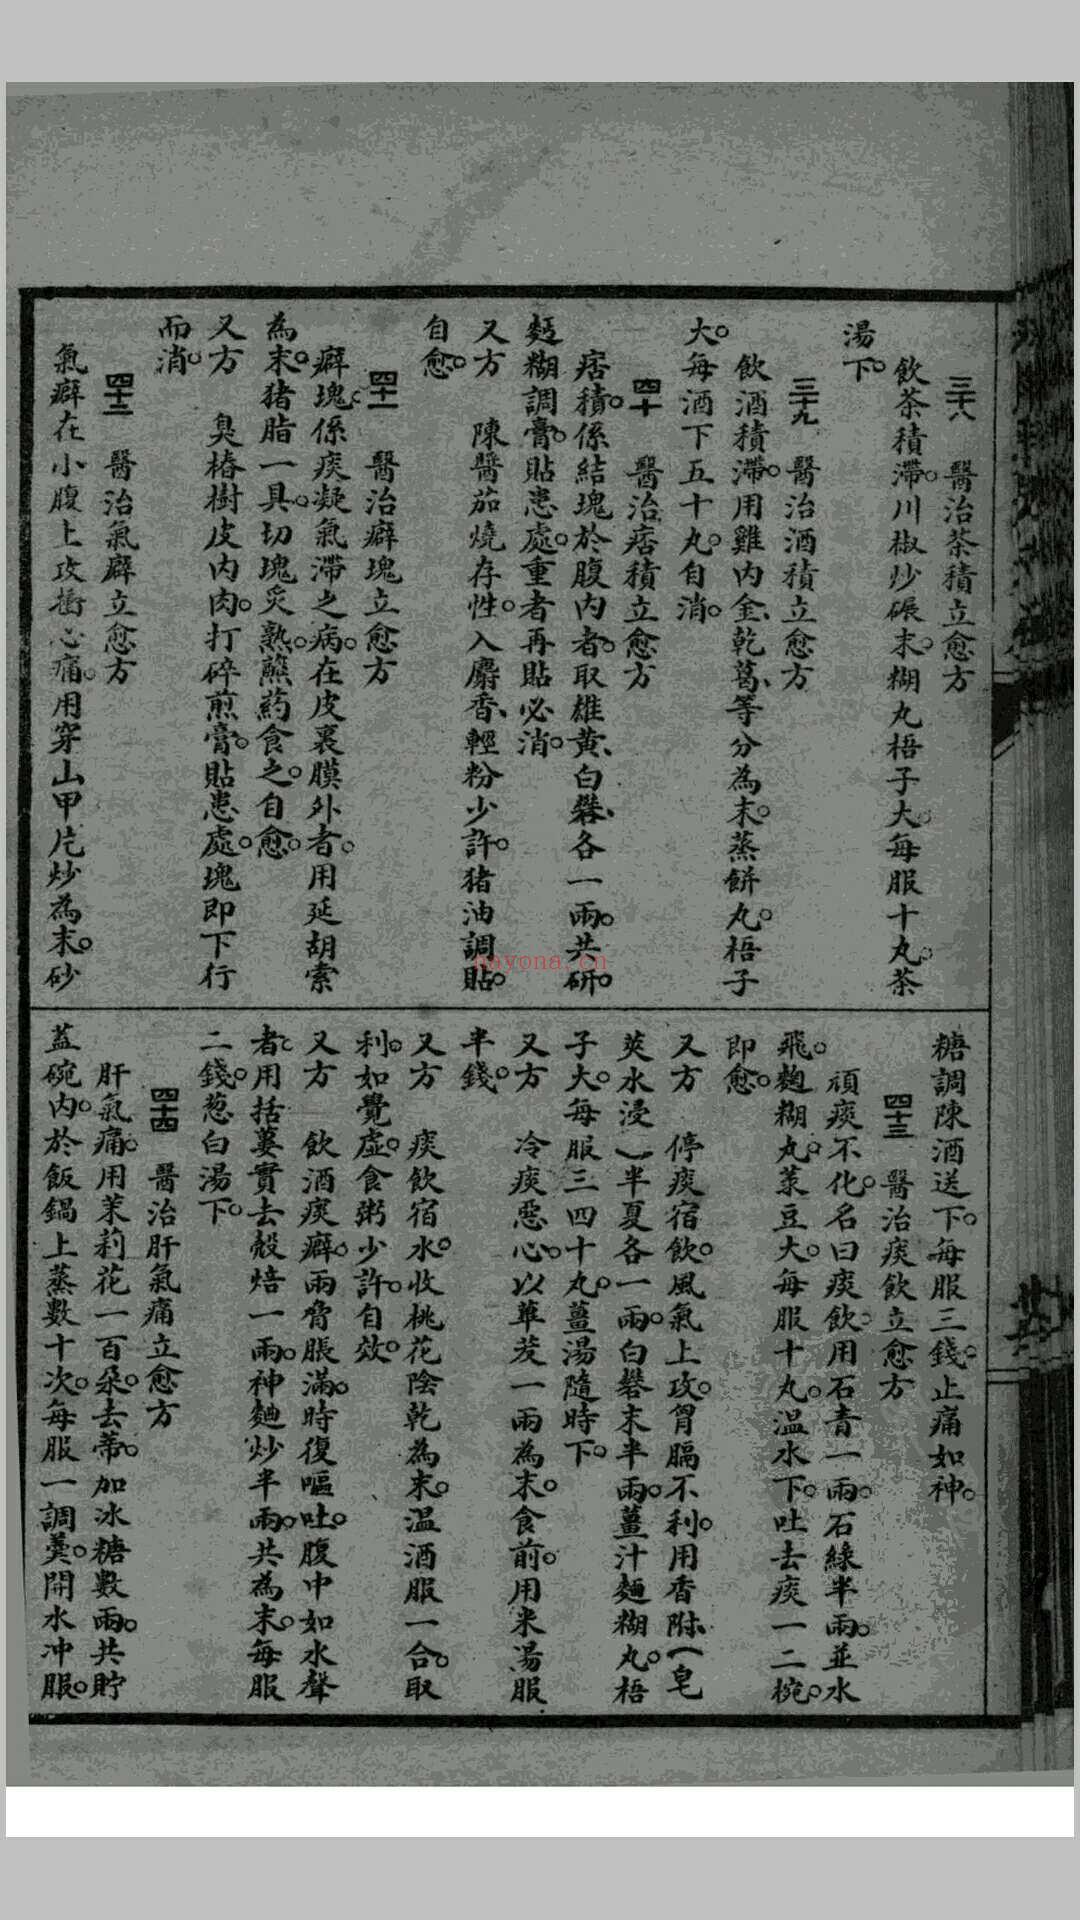 三十八　醫治茶積立愈方
飲茶積滯。川椒炒碾末。糊丸梧子大。每服十丸。茶
湯下。
三十九　醫治酒積立愈方
飲酒積滯。用雞內金、乾葛、等分為末。蒸餅丸。梧子
大。每酒下五十丸。自消。
四十　醫治痞積立愈方
痞積。係結塊於腹內者。取雄黃、白礬、各一兩。共研。
麪糊調膏。貼患處。重者再貼必消。
又方　陳醬茄燒存性。入麝香、輕粉少許。猪油調貼。
自愈。
四十一　醫治癖塊立愈方
癖塊。係痰凝氣滯之病。在皮裏膜外者。用延胡索
為末。猪脂一具。切塊炙熟。蘸葯食之。自愈。
又方　臭椿樹皮內肉。打碎煎膏。貼患處。塊即下行
而消。
四十二　醫治氣癖立愈方
氣癖在小腹上攻衝心痛。用穿山甲片炒為末。砂
糖調陳酒送下。每服三錢。止痛如神。
四十三　醫治痰飲立愈方
頑痰不化。名曰痰飲。用石青一兩。石綠半兩。並水
飛。麴糊丸。菉豆大。每服十丸。温水下。吐去痰一二椀。
即愈。
又方　停痰宿飲。風氣上攻。胷膈不利。用香附（皂
莢水浸）半夏各一兩。白礬末半兩。薑汁麵糊丸。梧
子大。每服三四十丸。薑湯隨時下。
又方　冷痰惡心。以蓽茇一兩為末。食前。用米湯服
半錢。
又方　痰飲宿水。收桃花陰乾為末。温酒服一合。取
利。如覺虛。食粥少許。自效。
又方　飲酒痰癖。兩脅脹滿。時復嘔吐。腹中如水聲
者。用括蔞實去殼焙一兩。神麯炒半兩。共為末。每服
二錢。葱白湯下。
四十四　醫治肝氣痛立愈方
肝氣痛。用茉莉花一百朵。去蒂。加冰糖數兩。共貯
蓋碗內。於飯鍋上蒸數十次。每服一調羹。開水冲服。
nayona.cn